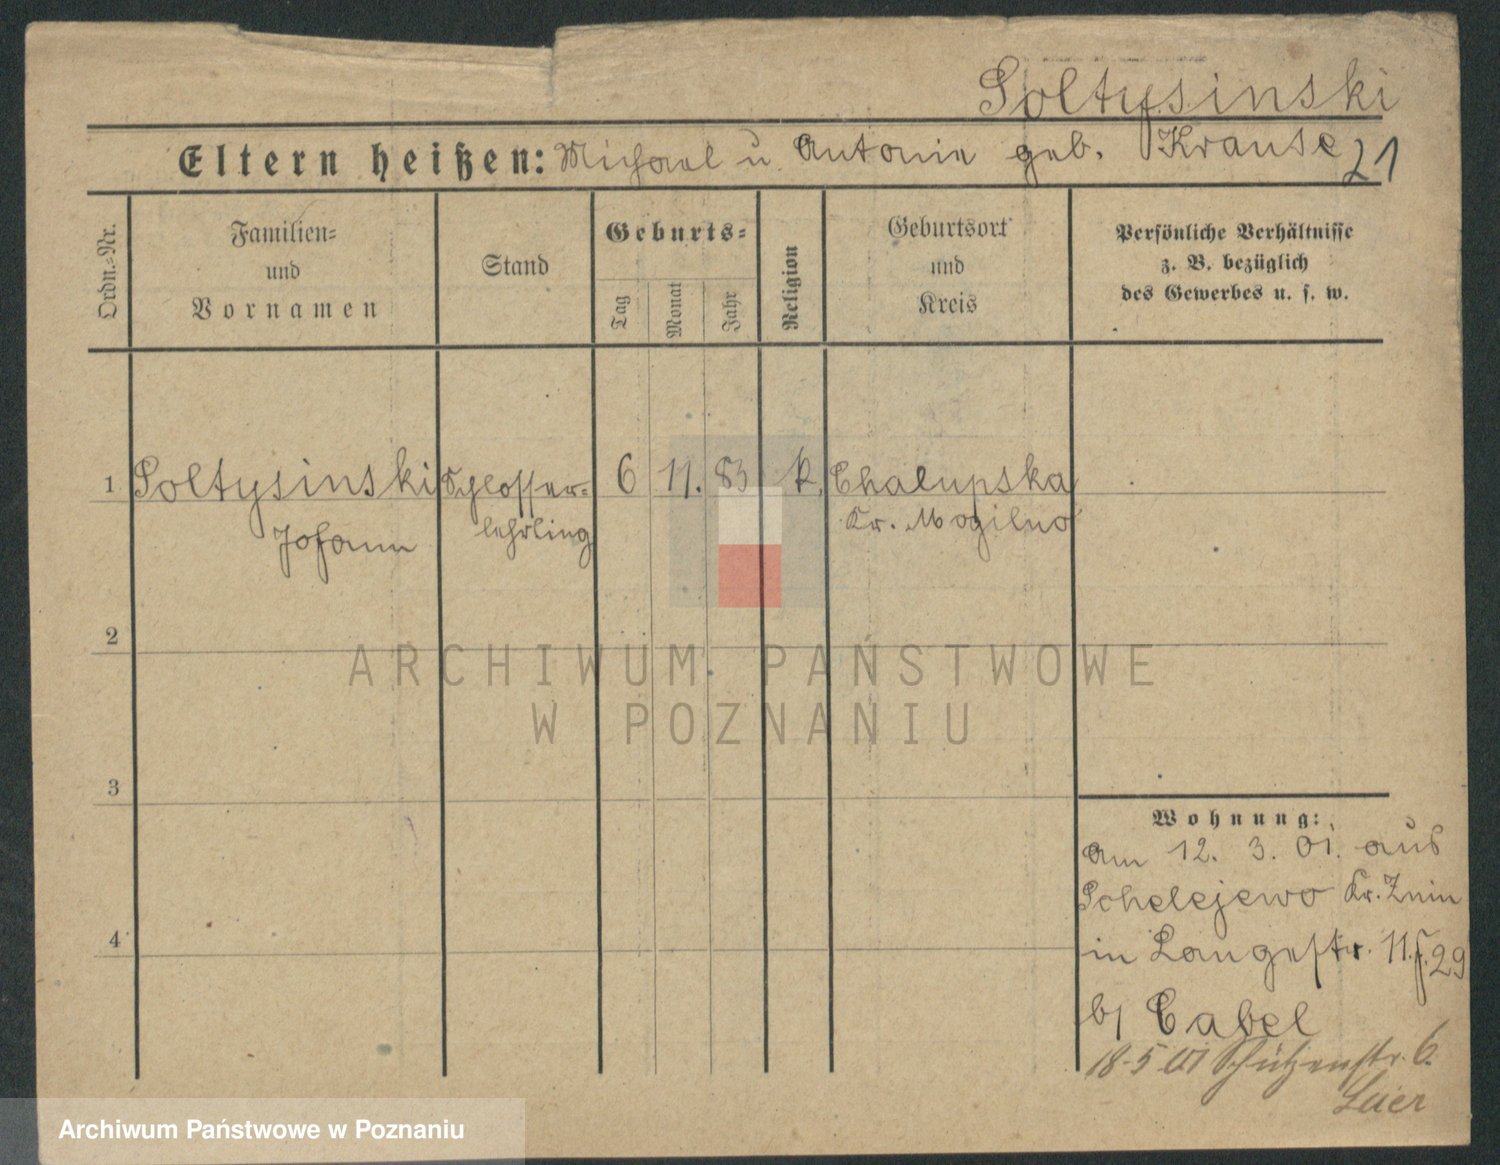 Soltysinski
Eltern heißen: Michael u. Antonie geb. Krause 21
Ordn.-Nr.
Familien-
und
Vornamen
Stand
Geburts-
Tag
Monat
Jahr
Religion
Geburtsort
und
Kreis
Persönliche Verhältnisse
z. B. bezüglich
des Gewerbes u. s. w.
1 Soltysinski Schlosser- 6 11. 83 k. Chalupska
Johann lehrling Kr. Mogilno
2
ARCHIWUM PAŃSTWOWE
W POZNANIU
3
Wohnung:
am 12. 3. 01. aus
Schelejewo Kr. Znin
4
in Langestr. 11. 29
b/ Cabel
18.5.01 Schützenstr. 6.
Archiwum Państwowe w Poznaniu